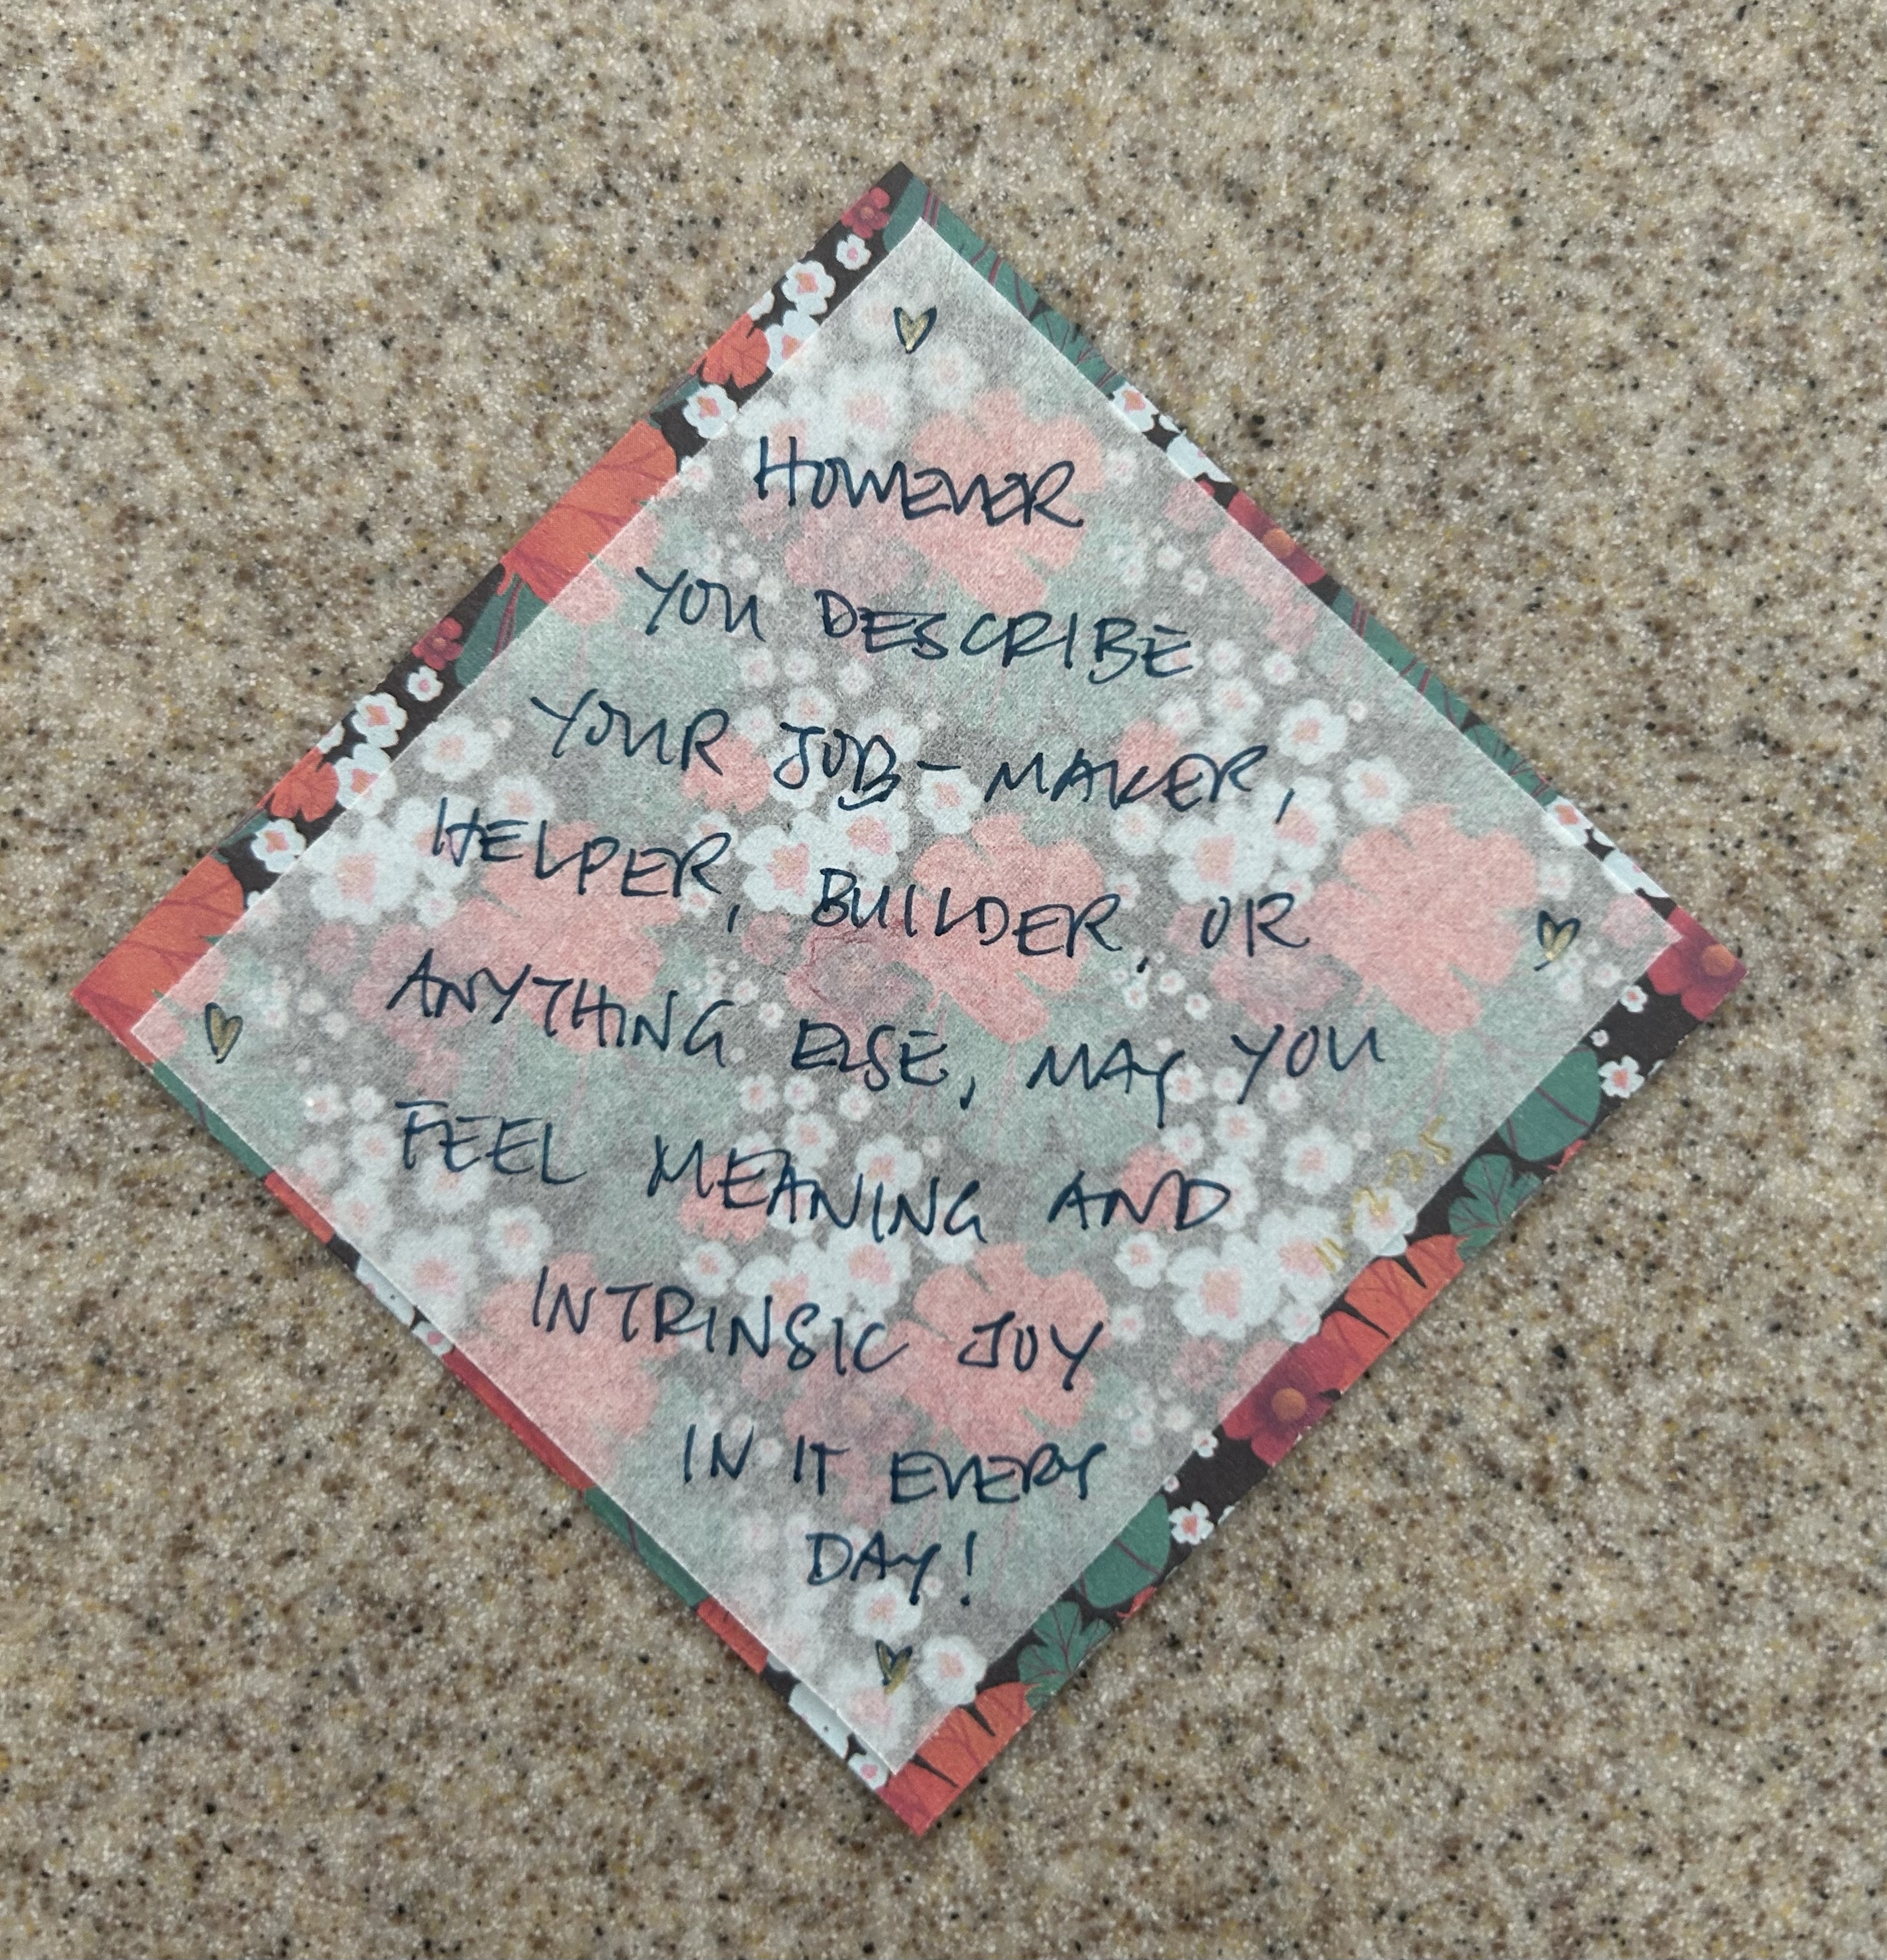 HOWEVER
YOU DESCRIBE
YOUR JOB - MAKER,
HELPER, BUILDER, OR
ANYTHING ELSE, MAY YOU
FEEL MEANING AND
INTRINSIC JOY
IN IT EVERY
DAY!